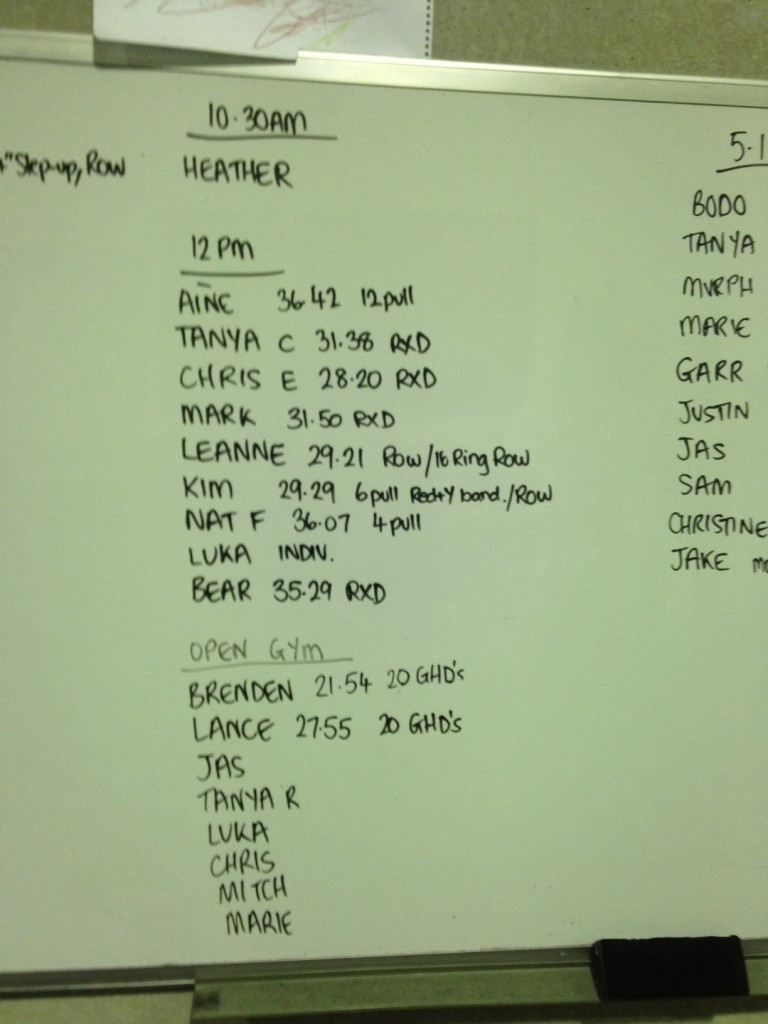 "Step-up, Row
10.30AM
HEATHER
12PM
AINE 36.42 12pull
TANYA C 31.38 RXD
CHRIS E 28.20 RXD
MARK 31.50 RXD
LEANNE 29.21 Row/16 Ring Row
KIM 29.29 6pull Red+Y band./Row
NAT F 36.07 4pull
LUKA INDIV.
BEAR 35.29 RXD
OPEN GYM
BRENDEN 21.54 20 GHD's
LANCE 27.55 20 GHD's
JAS
TANYA R
LUKA
CHRIS
MITCH
MARIE
5.1
BODO
TANYA
MURPH
MARIE
GARR
JUSTIN
JAS
SAM
CHRISTINE
JAKE